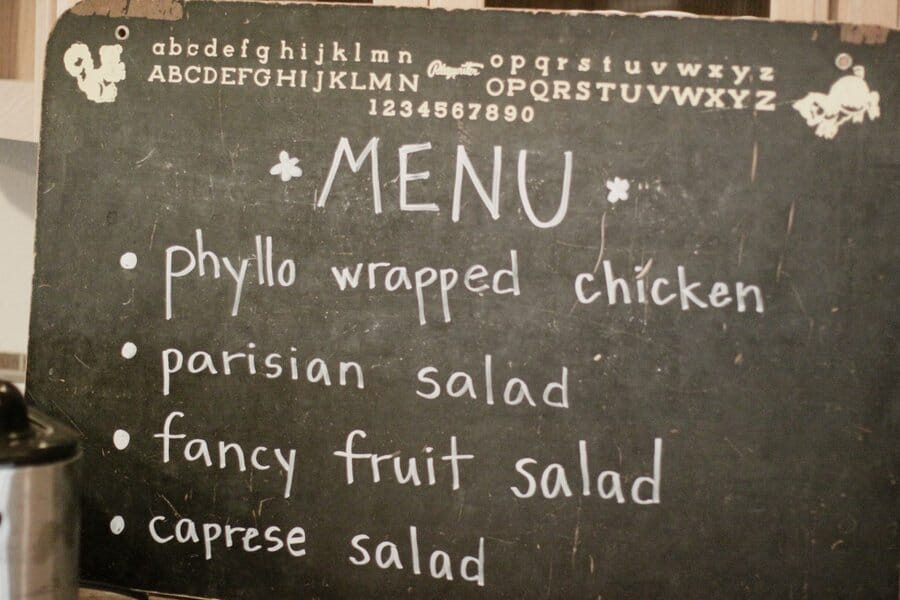 abcdefghijklmn opqrstuvwxyz
ABCDEFGHIJKLMN OPQRSTUVWXYZ
1234567890
MENU
• phyllo wrapped chicken
• parisian salad
• fancy fruit salad
• caprese salad